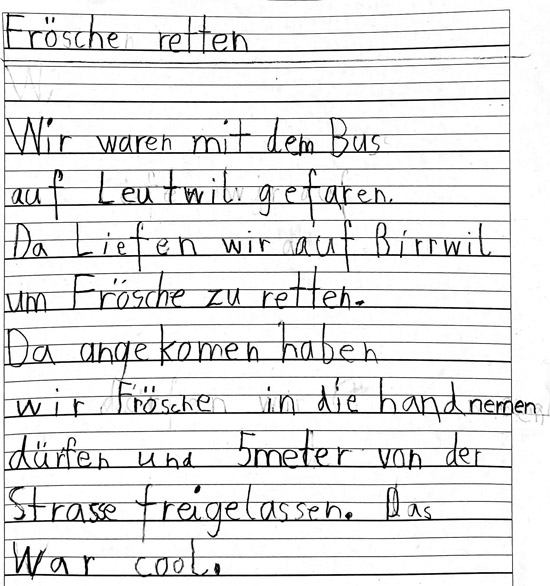 Frösche retten
Wir waren mit dem Bus
auf Leutwil gefaren.
Da Liefen wir auf Birrwil
um Frösche zu retten.
Da angekomen haben
wir Fröschen in die handnemen
dürfen und 5meter von der
Strasse freigelassen. Das
War cool.